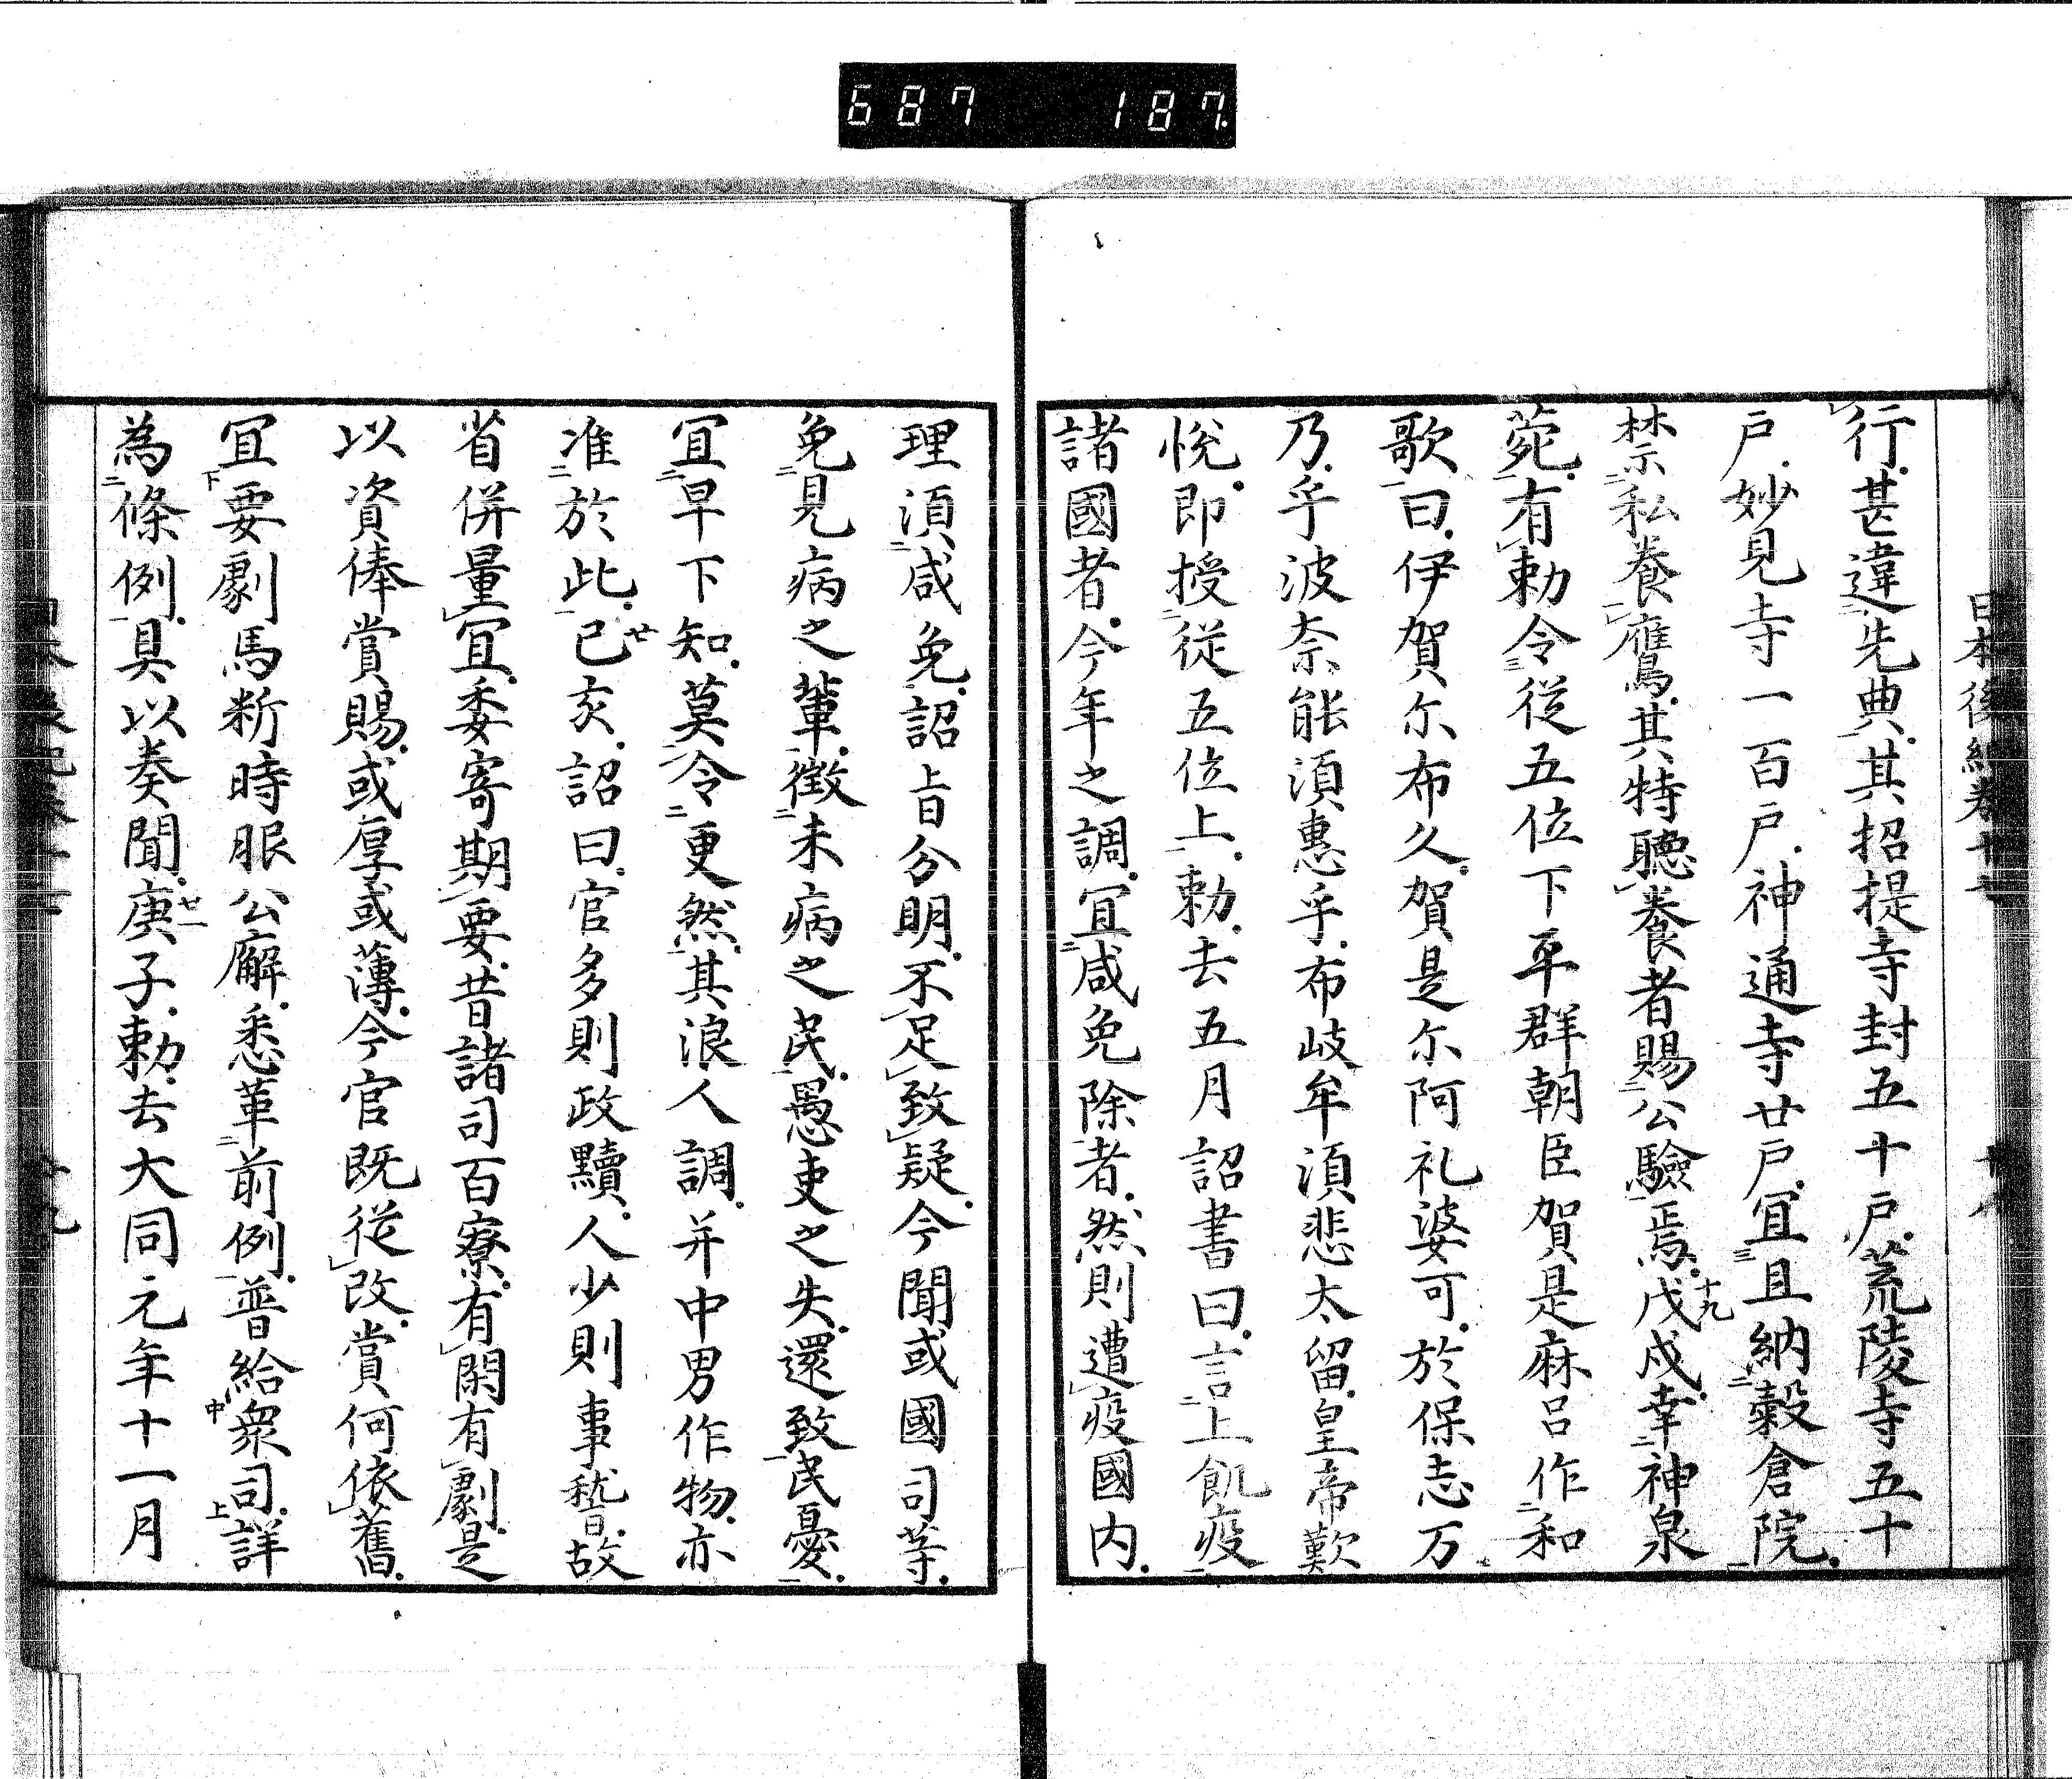 687 187.
行甚違先典其招提寺封五十戸荒陵寺五十
戸妙見寺一百戸神通寺廿戸冝且納穀倉院
禁私養鷹其特聴養者賜公驗焉戊戍幸神泉
十九
苑有勅令從五位下平群朝臣賀是麻呂作和
歌曰伊賀尓布久賀是尓阿礼婆可於保志万
乃乎波奈能湏惠乎布岐牟湏悲太留皇帝歎
悦即授從五位上勅去五月詔書曰言上飢疫
諸國者今年之調冝咸免除者然則遭疫國内
理湏咸免詔旨分明不足致疑今聞或國司等
免見病之輩徴未病之民愚吏之失還致民憂
冝早下知莫令更然其浪人調并中男作物亦
准於此已亥詔曰官多則政黷人少則事嵇故
廿
省併量冝委寄期要昔諸司百寮有閑有劇是
以資俸賞賜或厚或薄今官既從改賞何依舊
冝要劇馬新時服公廨悉革前例普給衆司詳
為條例具以奏聞庚子勅去大同元年十一月
廿一